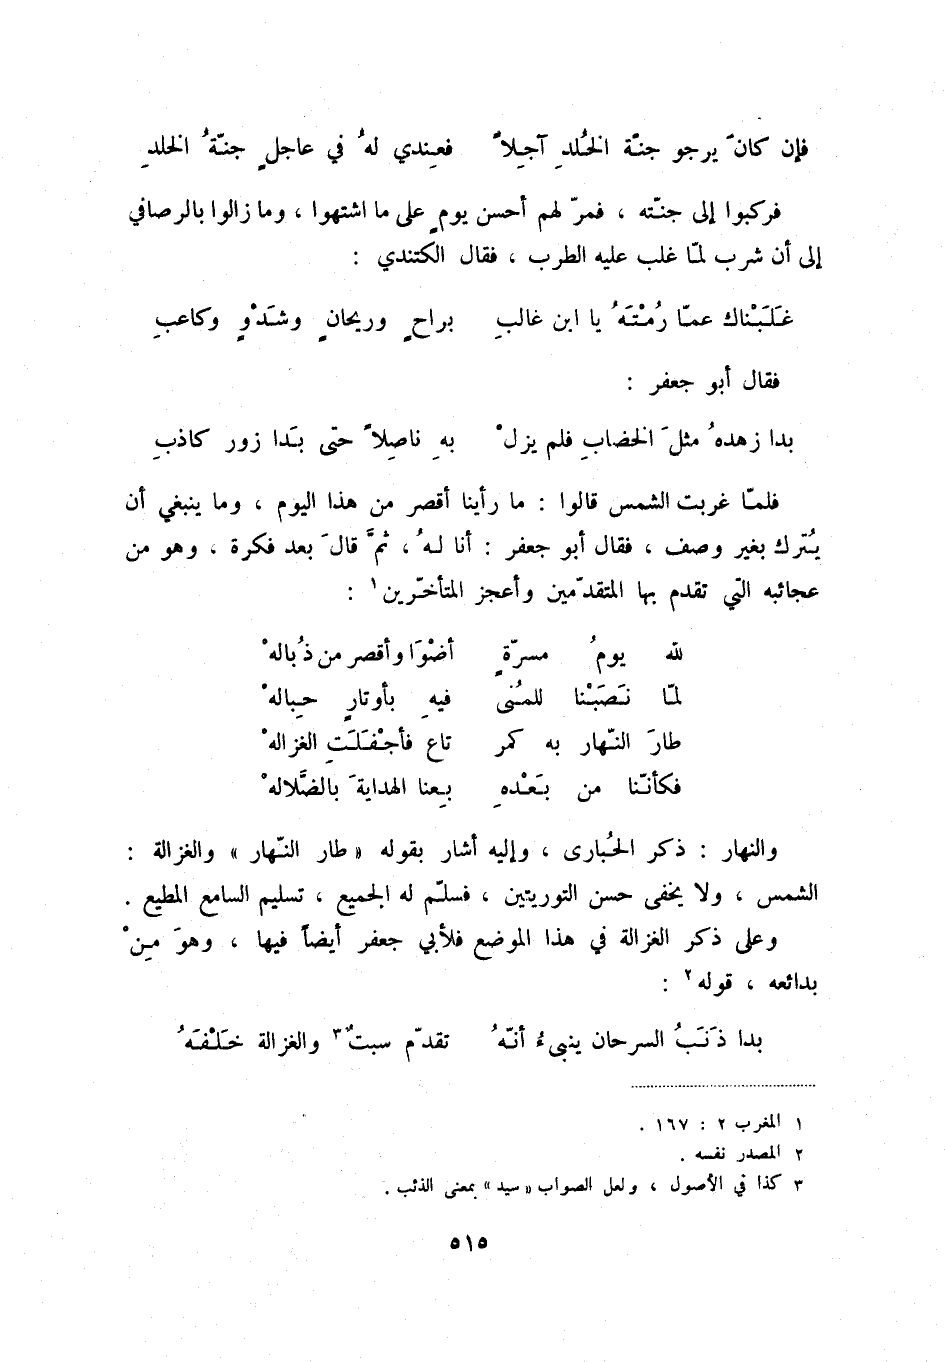 فإن كانَ يرجو جنّة الخُلدِ آجِلاً فعِندي لهُ في عاجلٍ جنّةُ الخلدِ
فركبوا إلى جنّته ، فمرّ لهم أحسن يومٍ على ما اشتهوا ، وما زالوا بالرصافي
إلى أن شرب لمّا غلب عليه الطرب ، فقال الكتندي :
غَلَبْناك عمّا رُمْتَهُ يا ابن غالبِ براحٍ وريحانٍ وشَدْوٍ وكاعبِ
فقال أبو جعفر :
بدا زهدهُ مثلَ الخضابِ فلم يزلْ بهِ ناصِلاً حتّى بَدا زور كاذبِ
فلمّا غربت الشمس قالوا : ما رأينا أقصر من هذا اليوم ، وما ينبغي أن
يُترك بغير وصف ، فقال أبو جعفر : أنا لهُ ، ثمَّ قالَ بعد فكرة ، وهو من
عجائبه التي تقدم بها المتقدّمين وأعجز المتأخّرين١ :
لله يومُ مسرّةٍ أضْوَا وأقصر من ذُبالهْ
لمّا نَصَبْنا للمُنى فيهِ بأوتارٍ حِبالهْ
طارَ النّهار به كمر تاع فأجْفَلَتِ الغزالهْ
فكأنّنا من بَعْدهِ بِعنا الهدايةَ بالضَّلالهْ
والنهار : ذكر الحُبارى ، وإليه أشار بقوله « طار النّهار » والغزالة :
الشمس ، ولا يخفى حسن التوريتين ، فسلّم له الجميع ، تسليم السامع المطيع .
وعلى ذكر الغزالة في هذا الموضع فلأبي جعفر أيضاً فيها ، وهوَ مِنْ
بدائعه ، قوله٢ :
بدا ذَنَبُ السرحان ينبىءُ أنّهُ تقدّم سبتٌ٣ والغزالة خَلْفَهُ
١ المغرب ٢ : ١٦٧ .
٢ المصدر نفسه .
٣ كذا في الأصول ، ولعل الصواب « سيد » بمعنى الذئب .
٥١٥